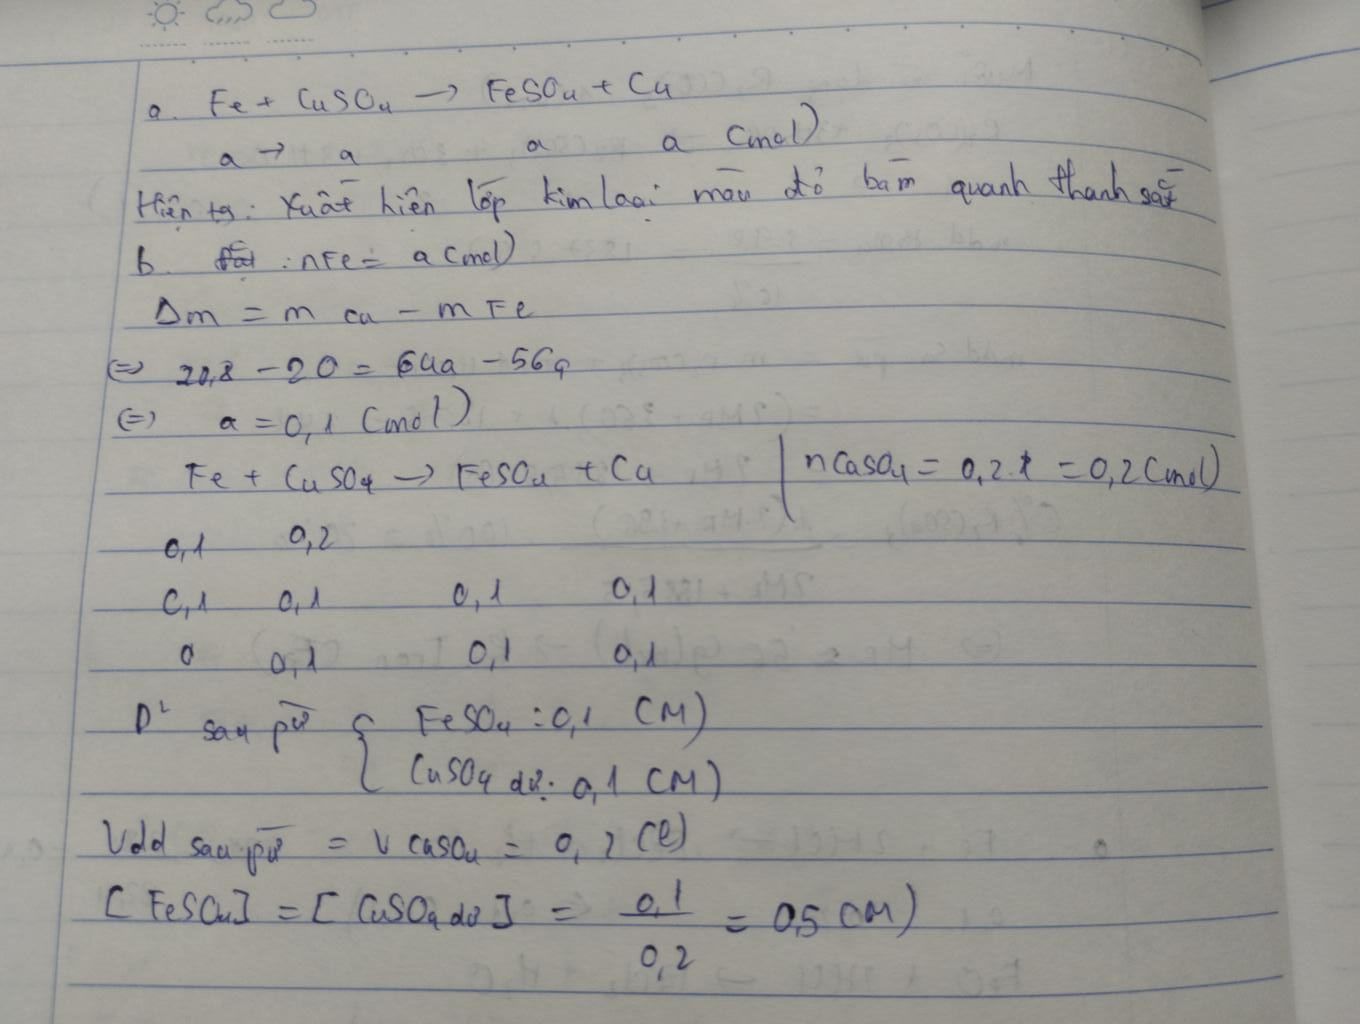 a. Fe + CuSO4 → FeSO4 + Cu
a → a a a (mol)
Hiện tg: Xuất hiện lớp kim loại màu đỏ bám quanh thanh sắt
b. Đặt : nFe = a (mol)
Δm = m Cu - m Fe
⇔ 20,8 - 20 = 64a - 56a
⇔ a = 0,1 (mol)
Fe + CuSO4 → FeSO4 + Cu | nCuSO4 = 0,2.1 = 0,2 (mol)
0,1 0,2
0,1 0,1 0,1 0,1
0 0,1 0,1 0,1
D² sau pứ { FeSO4 : 0,1 (M)
CuSO4 dư: 0,1 (M)
Vdd sau pứ = V CuSO4 = 0,2 (l)
[FeSO4] = [CuSO4 dư] = 0,1 / 0,2 = 0,5 (M)